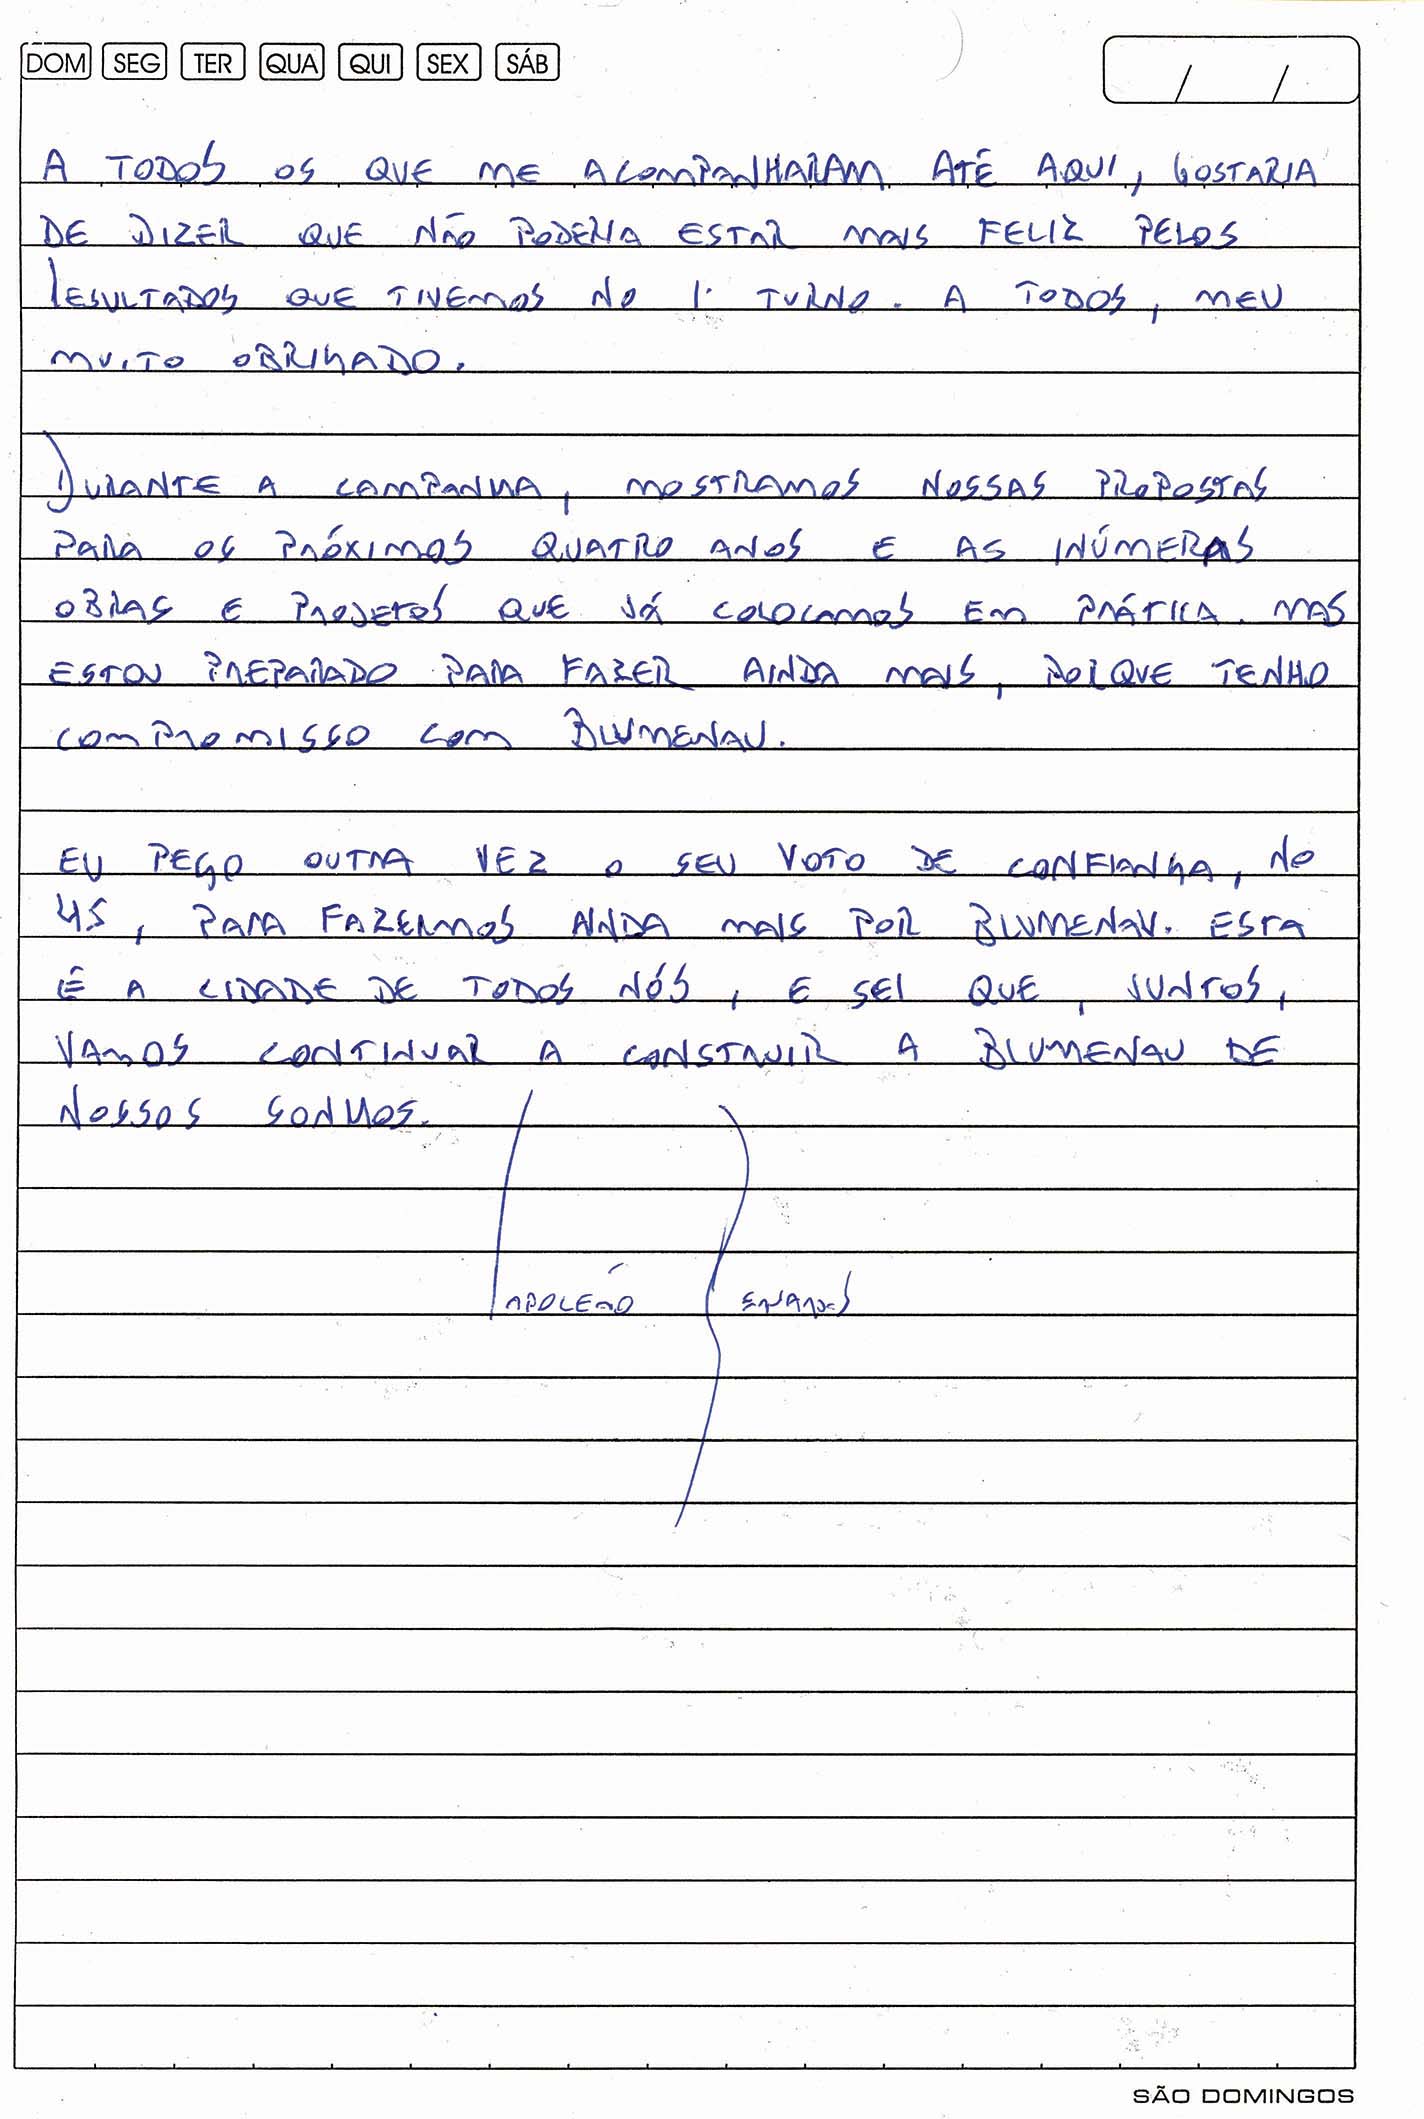 DOM SEG TER QUA QUI SEX SÁB
/ /
A TODOS OS QUE ME ACOMPANHARAM ATÉ AQUI, GOSTARIA
DE DIZER QUE NÃO PODERIA ESTAR MAIS FELIZ PELOS
RESULTADOS QUE TIVEMOS NO 1º TURNO. A TODOS, MEU
MUITO OBRIGADO.
DURANTE A CAMPANHA, MOSTRAMOS NOSSAS PROPOSTAS
PARA OS PRÓXIMOS QUATRO ANOS E AS INÚMERAS
OBRAS E PROJETOS QUE JÁ COLOCAMOS EM PRÁTICA. MAS
ESTOU PREPARADO PARA FAZER AINDA MAIS, PORQUE TENHO
COMPROMISSO COM BLUMENAU.
EU PEÇO OUTRA VEZ O SEU VOTO DE CONFIANÇA, NO
45, PARA FAZERMOS AINDA MAIS POR BLUMENAU. ESTA
É A CIDADE DE TODOS NÓS, E SEI QUE, JUNTOS,
VAMOS CONTINUAR A CONSTRUIR A BLUMENAU DE
NOSSOS SONHOS.
NAPOLEÃO BERNARDES
SÃO DOMINGOS